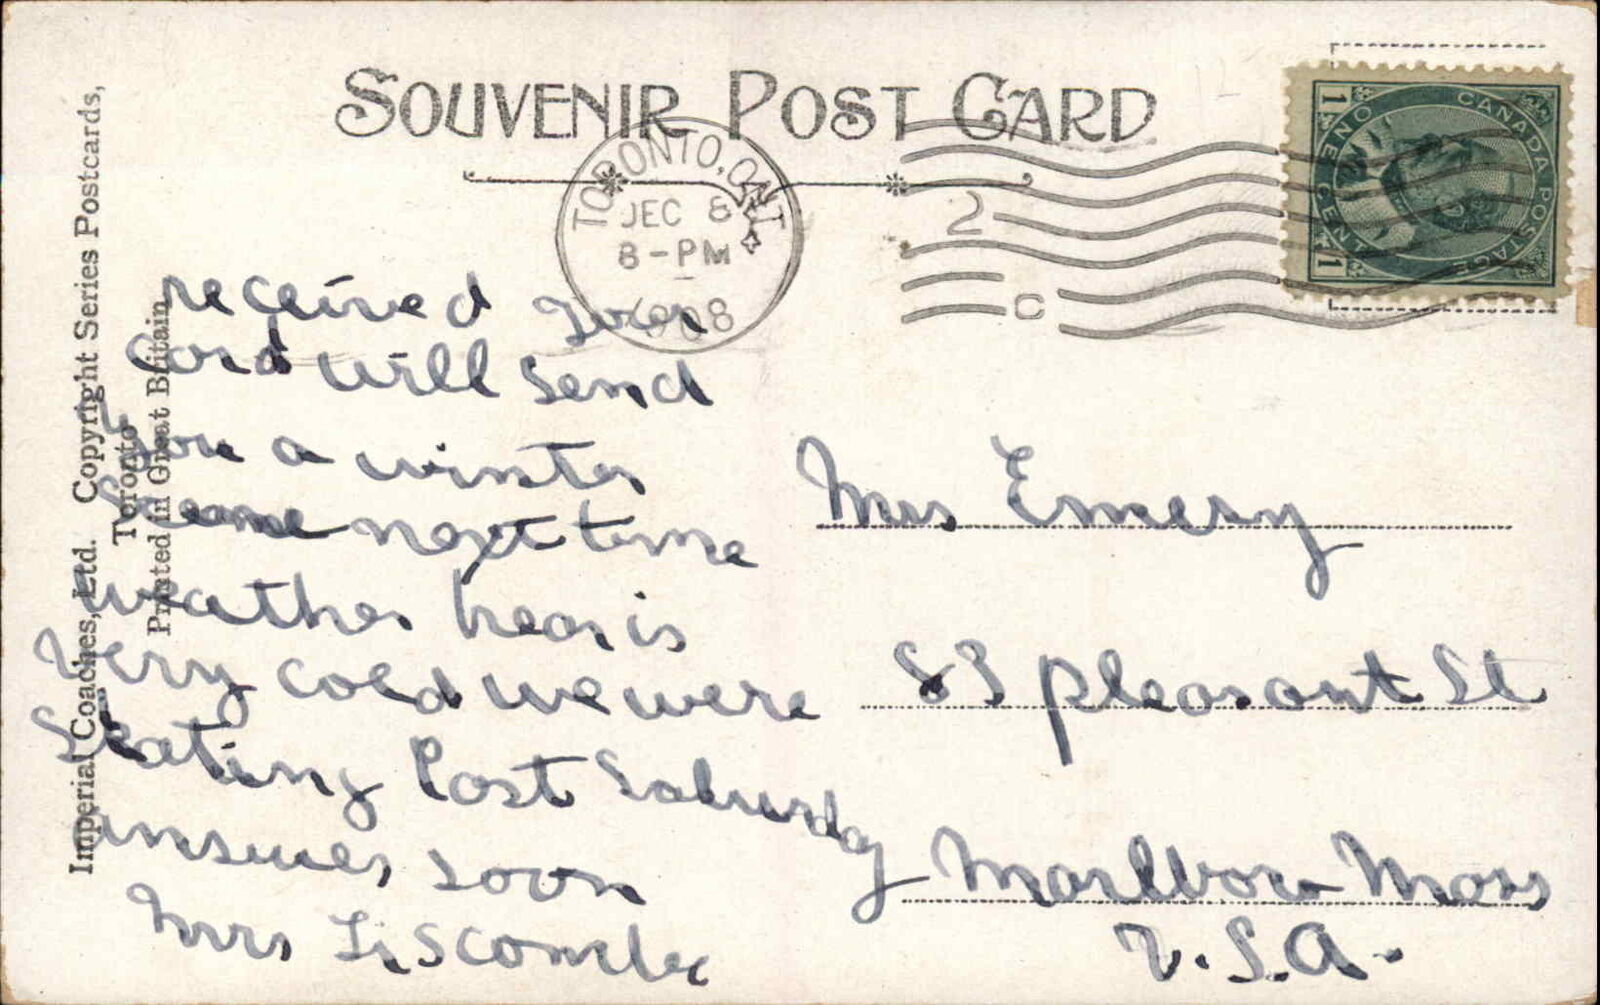 SOUVENIR POST CARD
TORONTO, ONT
DEC 8
8-PM
1908
2
C
CANADA POSTAGE
ONE CENT
1 1
Imperial Coaches, Ltd. Copyright Series Postcards,
Toronto
Printed in Great Britain
received your
Card will send
you a winter
Scene next time
weather hear is
very cold we were
Skating Last Saturday
answer soon
Mrs Liscombe
Mrs Emery
83 pleasant St
Marlboro Mass
U.S.A.